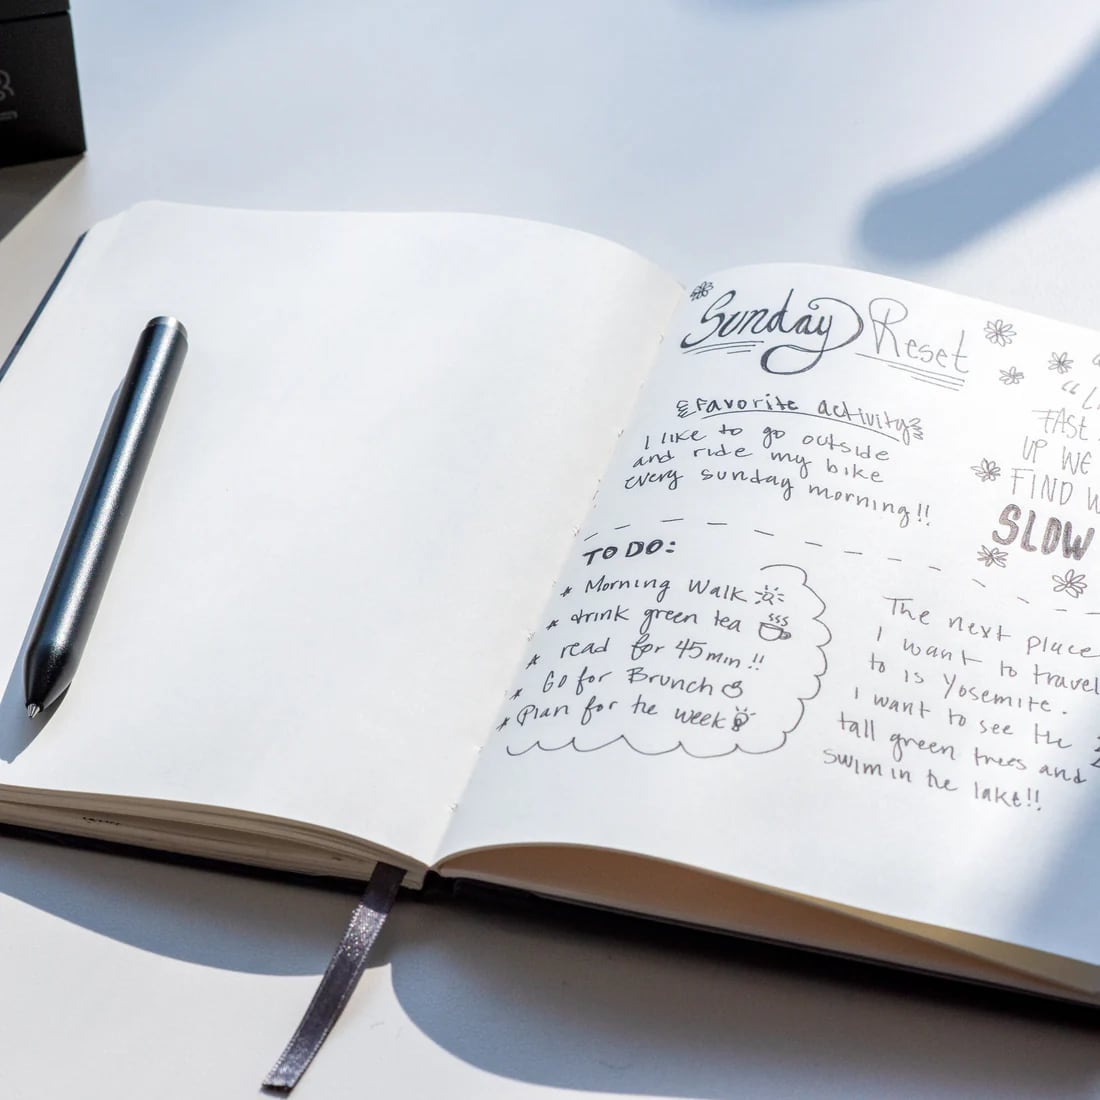 Sunday Reset
Favorite activity
I like to go outside
and ride my bike
every sunday morning!!
"LI
FAST
UP WE
FIND W
SLOW
TO DO:
* Morning Walk
* drink green tea
* read for 45min!!
* Go for Brunch
* Plan for the week
The next place
I want to travel
to is Yosemite.
I want to see the
tall green trees and
swim in the lake!!